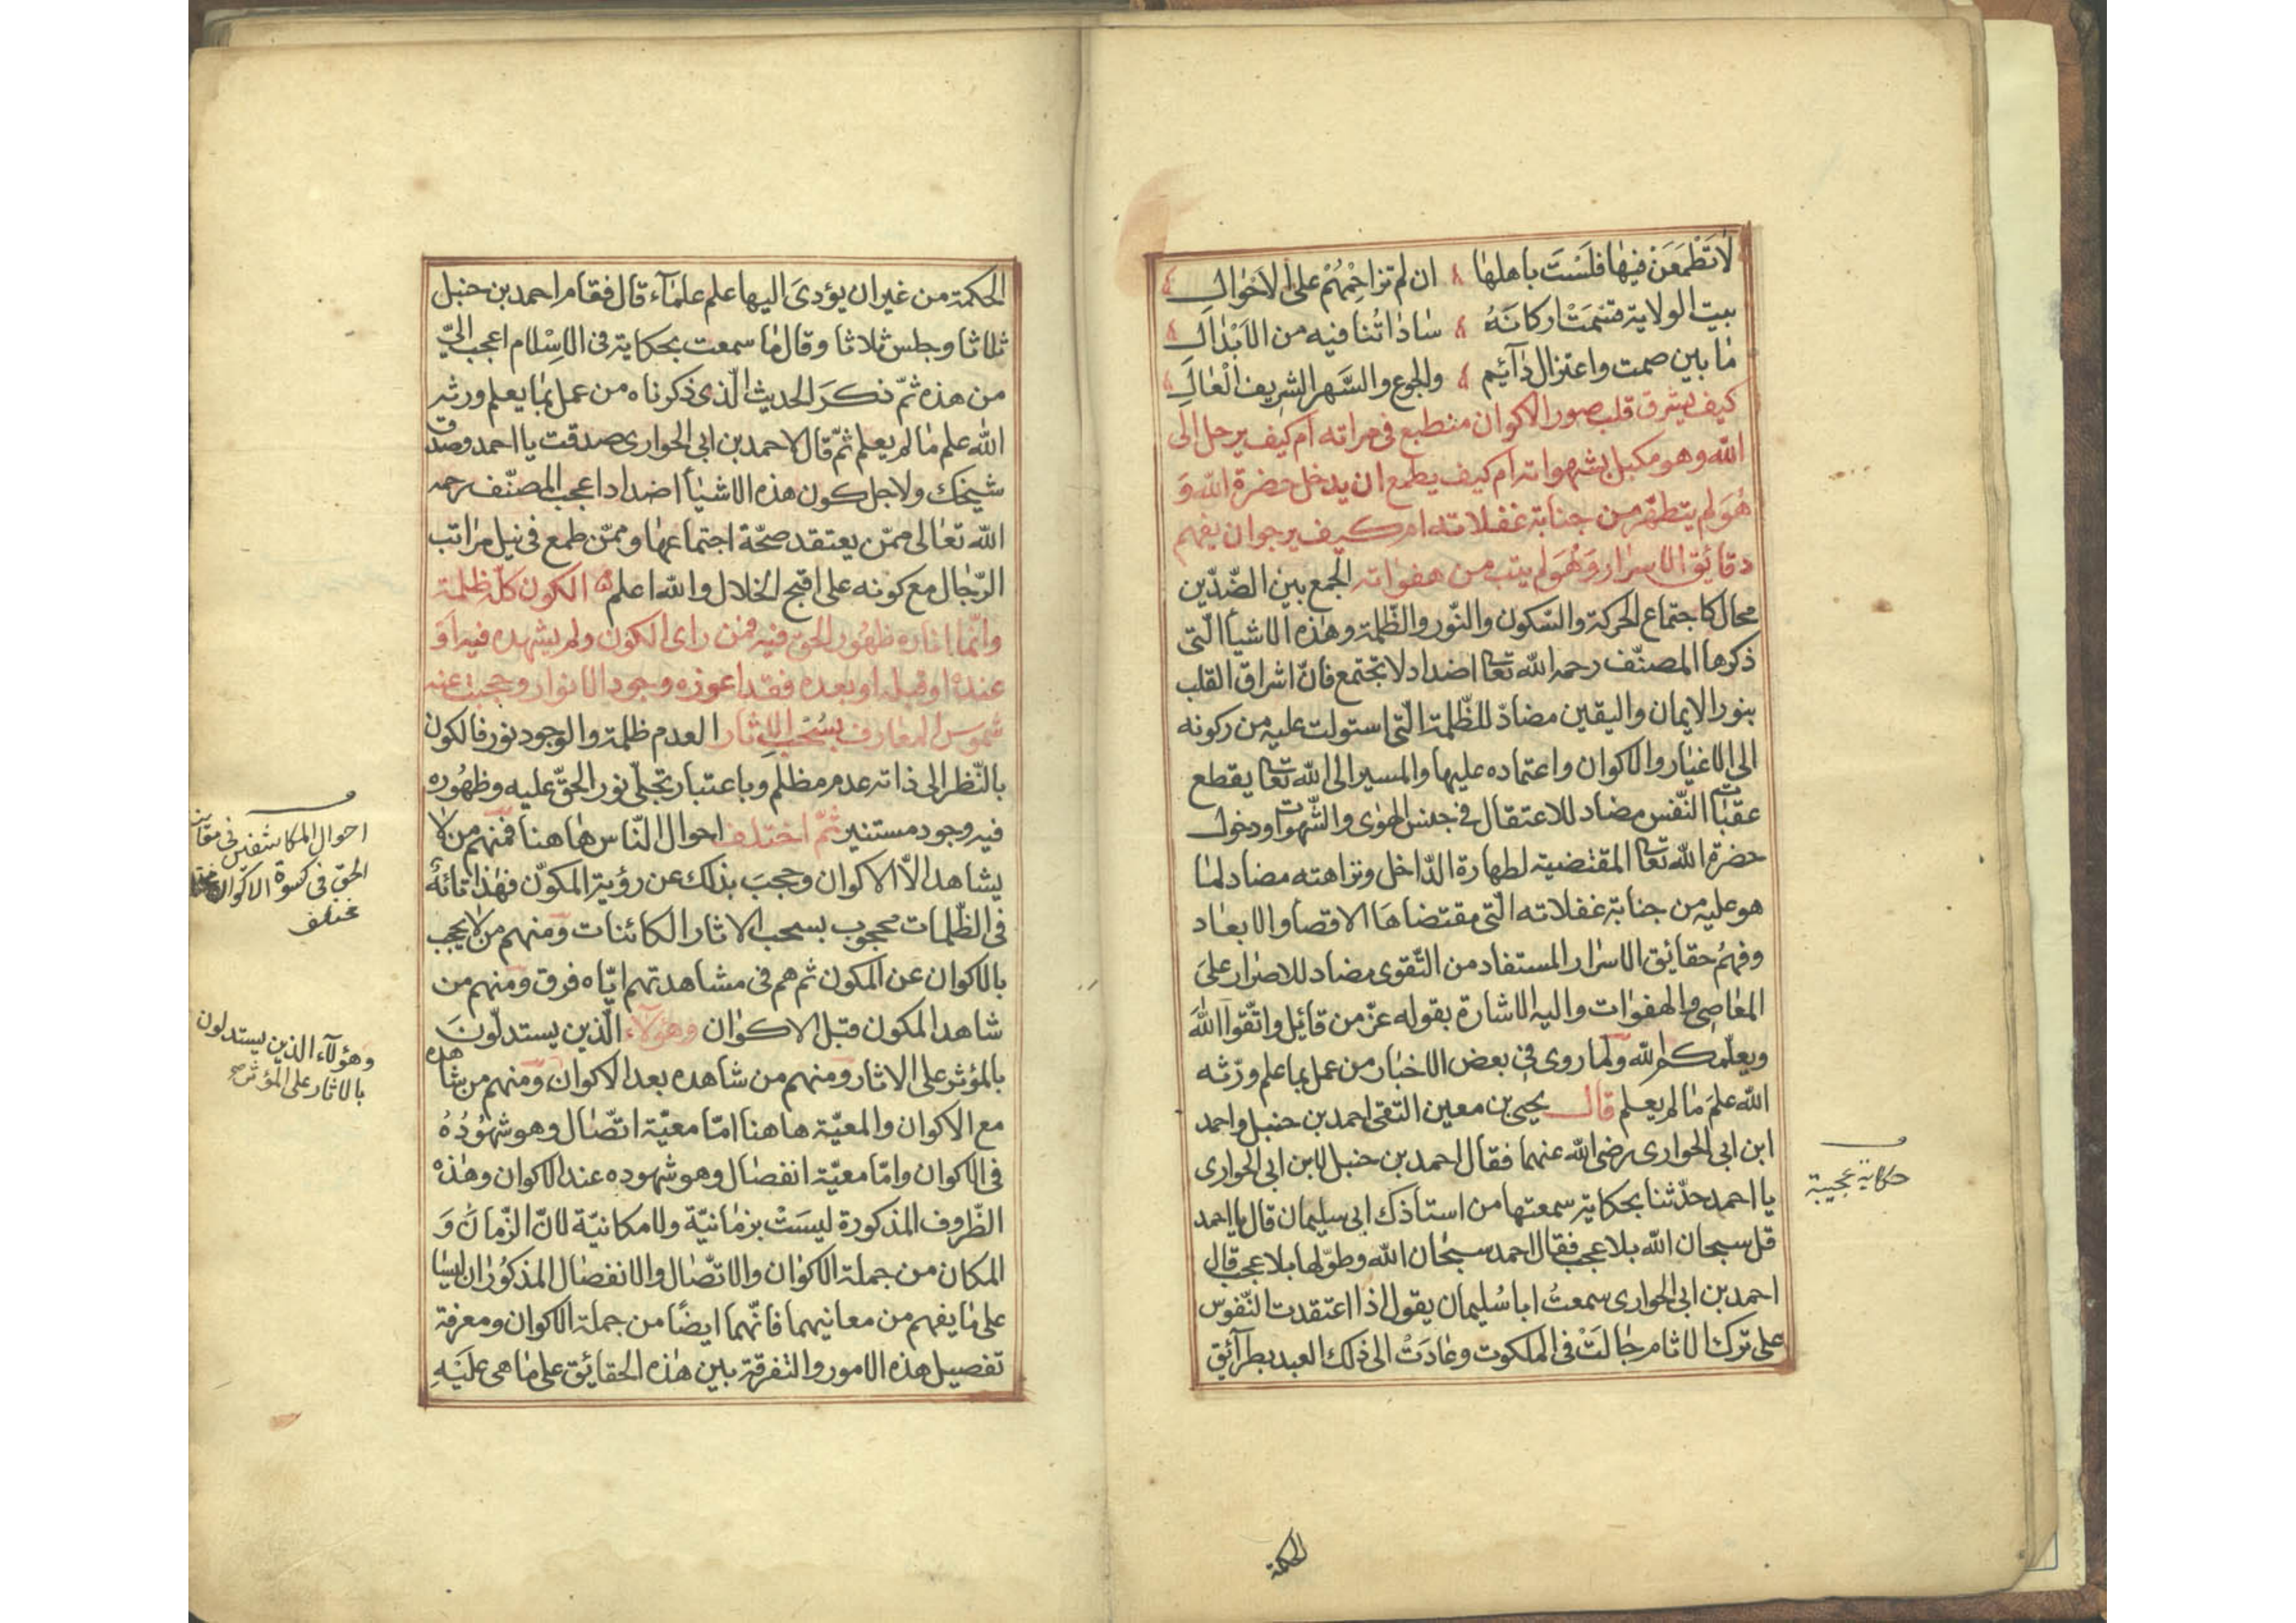 لا تَطْمَعَن فيها فلَسْتَ باهلها ان لم تزاحِمْهُمْ على الاَحْوالِ
بيت الولاية قسّمَتْ اركانَهُ سَاداتُنا فيه من الاَبْدالِ
ما بين صمت واعتزال دآئيم والجوع والسَّهر الشريف العَالِ
كيف يشرق قلب صور الاكوان منطبع فى مراته ام كيف يرحل الى
الله وهو مكبل بشهواته ام كيف يطمع ان يدخل حضرة الله وَ
هُوَ لم يتطهّر من جنابة غفلاته ام كيف يرجو ان يفهم
دقائق الاسرار وَهُوَ لم يتب من هفواته الجمع بين الضّدّين
محال كاجتماع الحركة والسّكون والنّور والظّلمة وهذه الاشيأ الّتى
ذكرها المصنّف رحمه الله تعا اضداد لا تجتمع فانّ اشراق القلب
بنور الايمان واليقين مضادّ للظّلمة الّتى استولت عليه من ركونه
الى الاغيار والاكوان واعتماده عليها والمسير الى الله تعا يقطع
عقبات النّفس مضاد للاعتقال فى حبس الهوى والشّهوات ودخول
حضرة الله تعا المقتضية لطهارة الدّاخل ونزاهته مضاد لما
هو عليه من جنابة غفلاته الّتى مقتضاها الاقصأ والابعاد
وفهمُ حقائيق الاسرار المستفاد من التّقوى مضاد للاصرار علىَ
المعاصِى والهفوات واليه الاشارة بقوله عزّ من قائيل واتّقوا اللهَ
ويعلّمكم الله ولما روى فى بعض الاخبار من عمل بما علم ورّثه
الله علمَ ما لم يعلم قال يحيى بن معين التقى احمد بن حنبل واحمد
ابن ابى الحوارى رضى الله عنهما فقال احمد بن حنبل لابن ابى الحوارى
يا احمد حدّثنا بحكاية سمعتها من استاذك ابى سليمان قال يا احمد
قل سبحان الله بلا عجب فقال احمد سبحان الله وطوّلها بلا عجب قال
احمد بن ابى الحوارى سمعتُ ابا سُليمان يقول اذا اعتقدت النّفوس
على ترك الاثام جالَتْ فى الملكوت وعادَتْ الى ذلك العبد بطرآئق
حكاية عجيبة
الحكمة
الحكمة من غير ان يؤدىَ اليها علم علمآء قال فقام احمد بن حنبل
ثلاثا وجلس ثلاثا وقال ما سمعت بحكاية فى الاِسْلام اعجب الىّ
من هذه ثمّ ذكرَ الحديث الّذى ذكرناه من عمل بما يعلم ورثه
الله علم ما لم يعلم ثمّ قال لاحمد بن ابى الحوارى صدقت يا احمد وصدق
شيخك ولاجل كون هذه الاشيأ اضدادا عجب المصنّف رحمه
الله تعالى ممّن يعتقد صحّة اجتماعها وممّن طمع فى نيل مراتب
الرّجال مع كونه على اقبح الخلال والله اعلم الكون كلّه ظلمة
وانّما اناره ظهُور الحق فيه فمن راى الكون ولم يشهده فيه اَوْ
عنده او قبله او بعده فقد اعوزه وجود الانوار وحجبت عنه
شموس المعارف بسُحُب الاثار العدم ظلمة والوجود نور فالكون
بالنّظر الى ذاته عدم مظلم وباعتبار تجلّى نور الحقّ عليه وظهُوره
فيه وجود مستنير ثمّ اختلف احوال النّاس هاهنا فمنهم من لا
يشاهد الاّ الاكوان وحجبَ بذلك عن رؤية المكوّن فهذا تائهٌ
فى الظّلمات محجوب بسحب الاثار الكائنات ومنهم من لا يحجب
بالاكوان عن المكون ثم هم فى مشاهدتهم ايّاه فرق ومنهم من
شاهد المكون قبل الاكوان وهؤلآء الّذين يستدلّونَ
بالمؤثر على الاثار ومنهم من شاهده بعد الاكوان ومنهم من شاهده
مع الاكوان والمعيّة هاهنا امّا معيّة اتّصال وهو شهُودُهُ
فى الاكوان وامّا معيّة انفصال وهو شهوده عند الاكوان وهذه
الظّروف المذكورة ليسَتْ بزمانيّة ولا مكانيّة لانّ الزّمان وَ
المكان من جملة الاكوان والاتّصال والانفصال المذكوُران ليسا
على ما يفهم من معانيهما فانّهما ايضًا من جملة الاكوان ومعرفة
تفصيل هذه الامور والتفرقة بين هذه الحقائيق على ما هى علَيْهِ
احوال المكاشفين فى
الحق فى كسوة الاكوان
مختلف
وهؤلآء الذين يستدلون
بالاثار على المؤثر